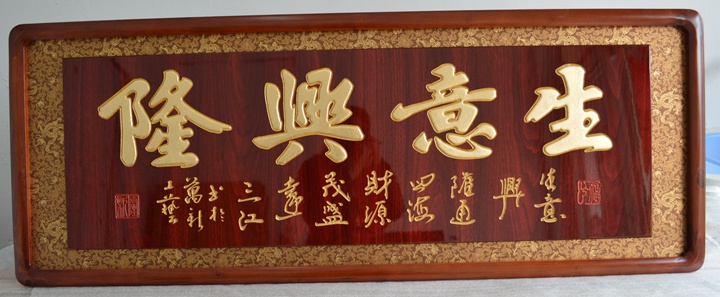 生意興隆
生意
興
隆通
四海
財源
茂盛
達
三江
书於
萬新
工藝